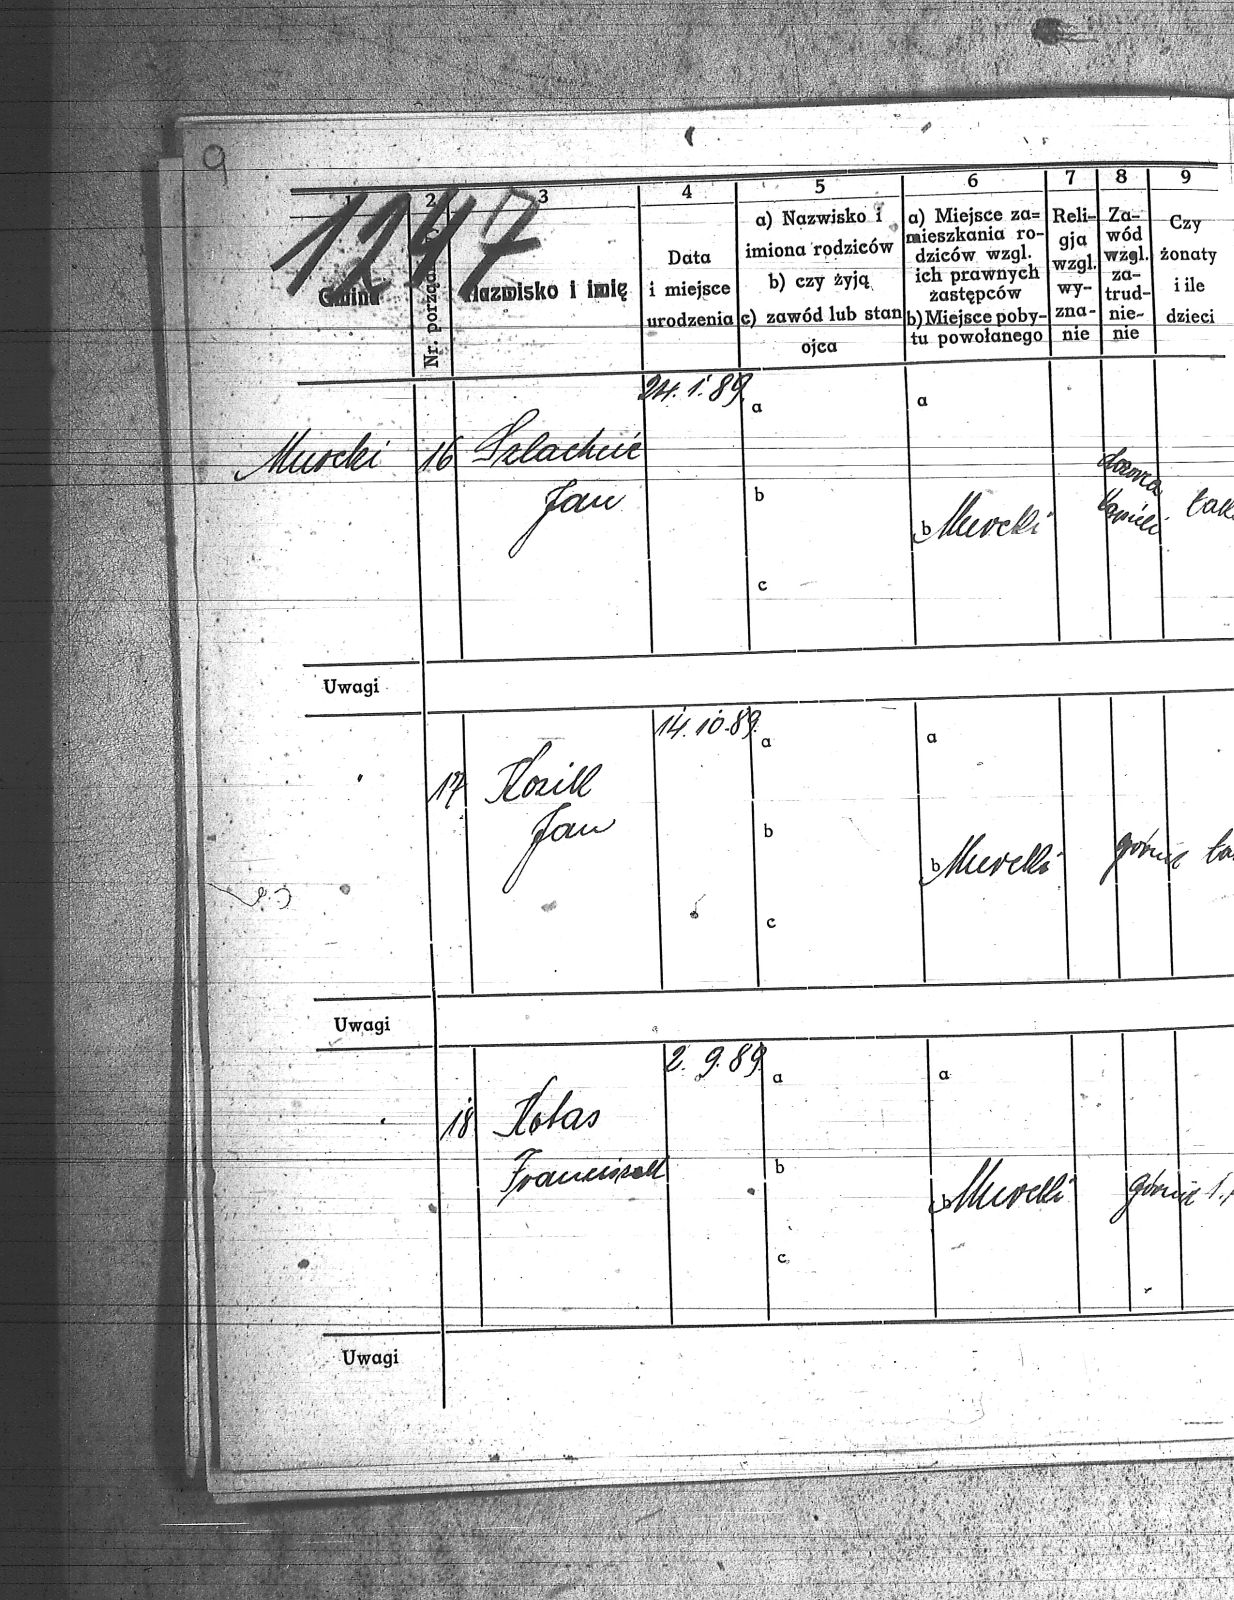 9
1247
1 2 3 4 5 6 7 8 9
Gmina
Nr. porządk.
Nazwisko i imię
Data
i miejsce
urodzenia
a) Nazwisko i
imiona rodziców
b) czy żyją
c) zawód lub stan
ojca
a) Miejsce za=
mieszkania ro-
dziców wzgl.
ich prawnych
zastępców
b) Miejsce poby-
tu powołanego
Reli-
gja
wzgl.
wy-
zna-
nie
Za-
wód
wzgl.
za-
trud-
nie-
nie
Czy
żonaty
i ile
dzieci
24. 1. 89.
a
a
Murcki 16 Szlachcic
Jan
b
b Murcki
dozorca
kąpieli
c
Uwagi
14. 10. 89.
a
a
17 Kozik
Jan
b
b Murcki
górnik
c
Uwagi
2. 9. 89.
a
a
18 Kotas
Franciszek
b
b Murcki
górnik
c
Uwagi